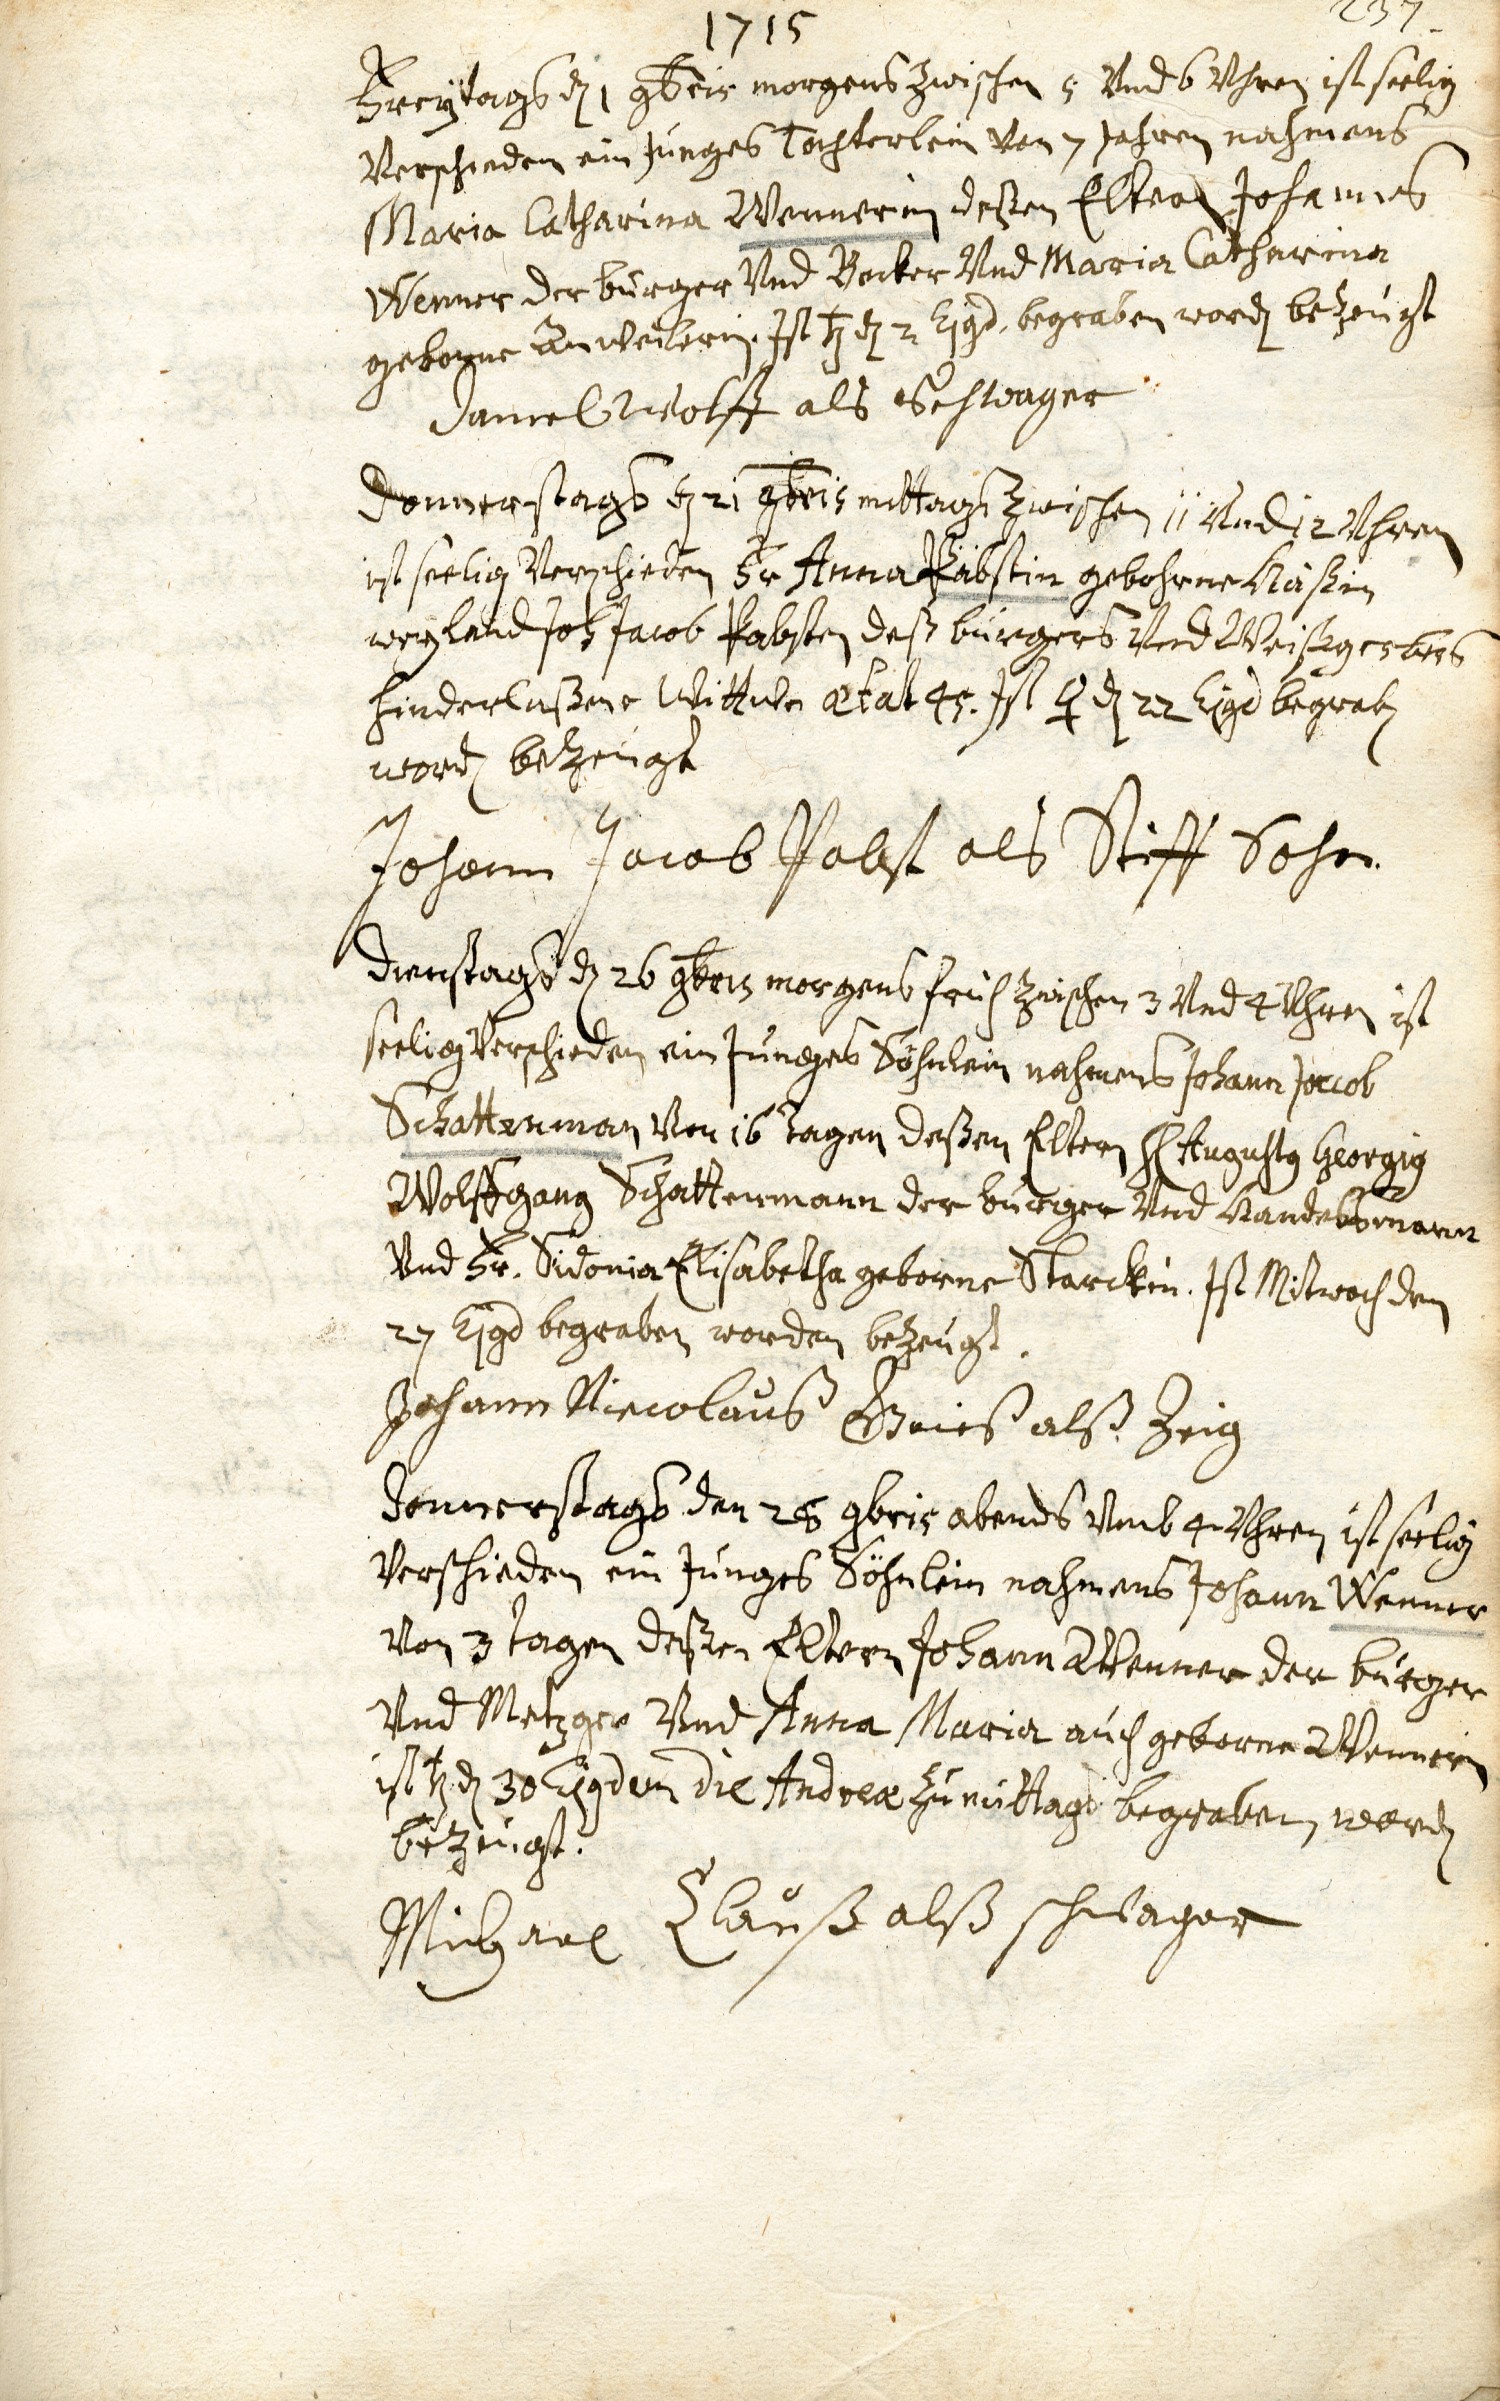 1715
237
Freÿtags dẽ 1 9bris morgens zwischen 5 Vnd 6 Vhren ist seelig
Verschieden ein Junges Tochterlein von 7 Jahren nahmens
Maria Catharina Wennerin deßen Eltern Johannes
Wenner der burger Vnd Becker Vnd Maria Catharina
geborne Anweilerin. Ist ♄ dẽ 2 Ejgd. begraben word. bezeugt
Daniel Wolff als Schwager
Donnerstags dẽ 21 9bris mittags zwischen 11 Vnd 12 Vhren
ist seelig Verschieden Fr. Anna Päbstin gebohrne
weyland Joh Jacob Pabsten deß burgers Vnd Weißgerbers
hinderlaßene Wittwe ætat 45. Ist ♀ dẽ 22 Ejgd begrab.
word. bezeugt
Johann Jacob Pabst als Stiff Sohn.
Dienstags dẽ 26 9bris morgens früh zwischen 3 Vnd 4 Vhren ist
seelig Verschieden ein Junges Söhnlein nahmens Johann Jacob
Schattenman Von 16 Tagen deßen Eltern H Augustg Georgig
Wolffgang Schattenmann der burger Vnd Handelsmann
Vnd Fr. Sidonia Elisabetha geborne Starckin. Ist Mitwoch den
27 Ejgd begraben worden bezeugt.
Johann Niecolauß alß Zeig
Donnerstags den 28 9bris abends Vmb 4 Vhren ist seelig
Verschieden ein Junges Söhnlein nahmens Johann Wenner
Von 3 tagen deßen Eltern Johann Wenner der burger
Vnd Metzger Vnd Anna Maria auch geborne Wennerin
ist ♄ dẽ 30 Ejgdem die Andreæ zu mittags begraben word.
bezeugt.
Michael Clauß alß schwager